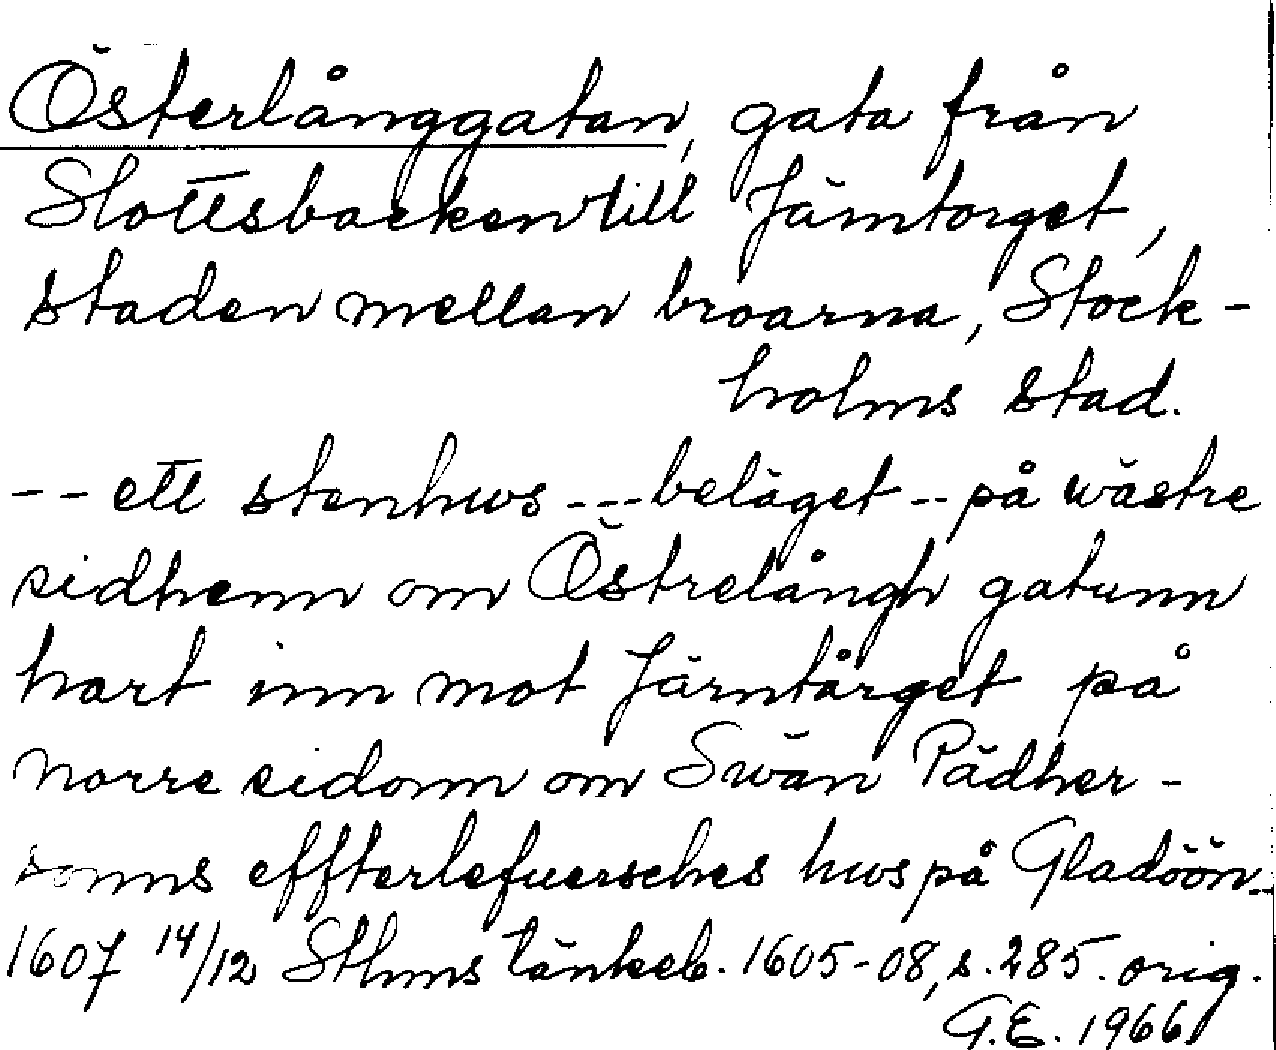 Österlånggatan, gata från
Slottsbacken till Järntorget,
staden mellan broarna, Stock-
holms stad.
-- ett stenhus --- beläget -- på wästre
sidhenn om Östrelångh gatunn
hart inn mot Järntårget på
norre sidonn om Swän Pädher-
sonns effterlefuersches hus på Gladöön--
1607 14/12 Sthms tänkeb. 1605-08, s. 285. orig.
G.E. 1966